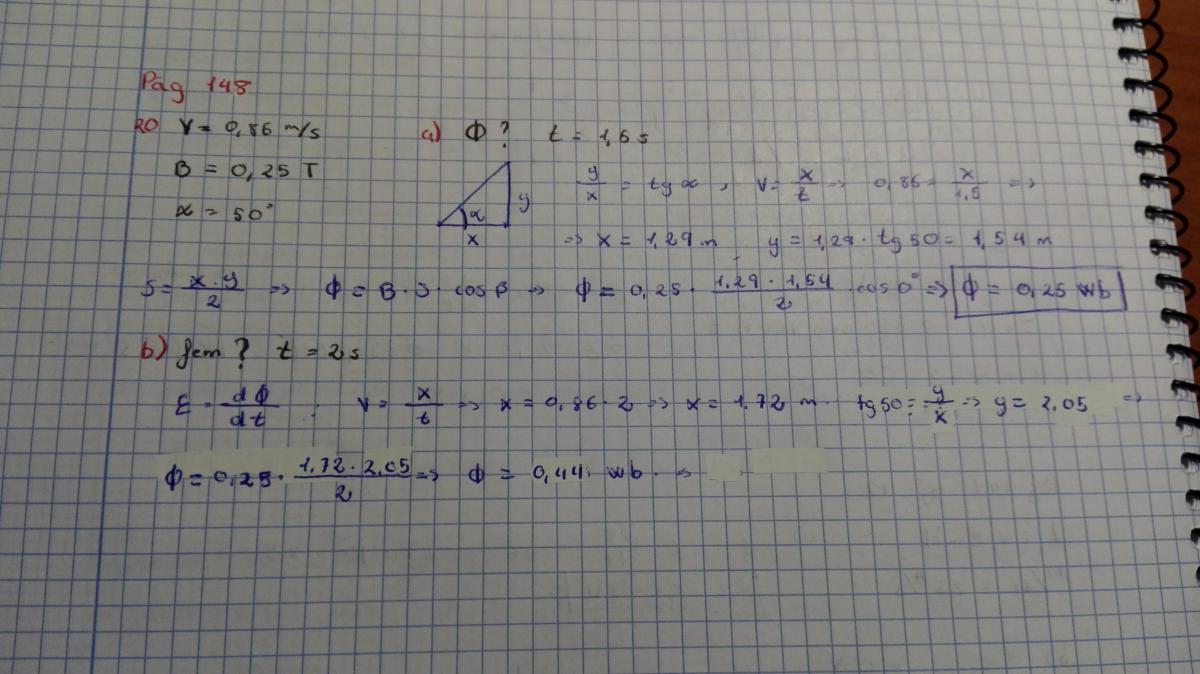 Pág 148
20 V = 0,86 m/s a) Φ? t = 1,5 s
B = 0,25 T
α = 50°
y/x = tg α, V = x/t => 0,86 = x/1,5 =>
α y
x
=> x = 1,29 m y = 1,29 · tg 50 = 1,54 m
S = x·y/2 => Φ = B·S·cos β => Φ = 0,25 · 1,29·1,54/2 cos 0° => Φ = 0,25 wb
b) fem? t = 2 s
ε = dΦ/dt ; V = x/t => x = 0,86·2 => x = 1,72 m. tg 50 = y/x => y = 2,05 =>
Φ = 0,25 · 1,72·2,05/2 => Φ = 0,44 wb. =>